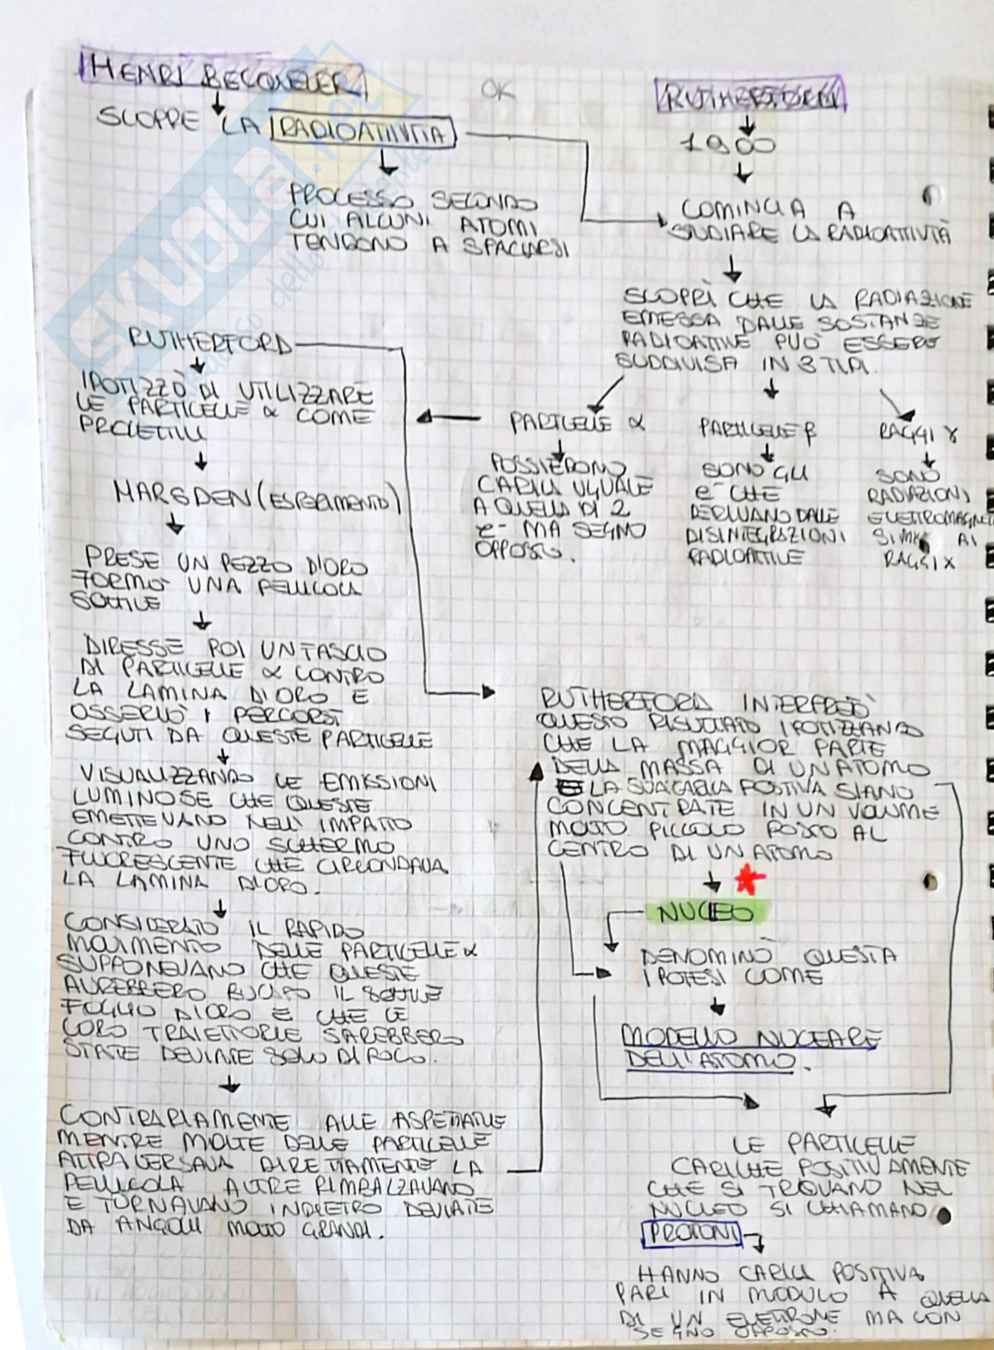 HENRÌ BECQUERER
SCOPRE LA RADIOATTIVITÀ
PROCESSO SECONDO
CUI ALCUNI ATOMI
TENDONO A SPACCARSI
OK
RUTHERFORD
1900
COMINCIA A
STUDIARE LA RADIOATTIVITÀ
SCOPRÌ CHE LA RADIAZIONE
EMESSA DALLE SOSTANZE
RADIOATTIVE PUÒ ESSERE
SUDDIVISA IN 3 TIPI.
PARTICELLE α
POSSIEDONO
CARICA UGUALE
A QUELLA DI 2
e- MA SEGNO
OPPOSTO.
PARTICELLE β
SONO GLI
e- CHE
DERIVANO DALLE
DISINTEGRAZIONI
RADIOATTIVE
RAGGI γ
SONO
RADIAZIONI
ELETTROMAGNETI
SIMILI AI
RAGGI X
RUTHERFORD
IPOTIZZÒ DI UTILIZZARE
LE PARTICELLE α COME
PROIETTILI
MARSDEN (ESPERIMENTO)
PRESE UN PEZZO D'ORO
FORMÒ UNA PELLICOLA
SOTTILE
DIRESSE POI UN FASCIO
DI PARTICELLE α CONTRO
LA LAMINA D'ORO E
OSSERVÒ I PERCORSI
SEGUTI DA QUESTE PARTICELLE
VISUALIZZANDO LE EMISSIONI
LUMINOSE CHE QUESTE
EMETTEVANO NELL'IMPATTO
CONTRO UNO SCHERMO
FLUORESCENTE CHE CIRCONDAVA
LA LAMINA D'ORO.
CONSIDERATO IL RAPIDO
MOVIMENTO DELLE PARTICELLE α
SUPPONEVANO CHE QUESTE
AVREBBERO BUCATO IL SOTTILE
FOGLIO D'ORO E CHE LE
LORO TRAIETTORIE SAREBBERO
STATE DEVIATE SOLO DI POCO.
CONTRARIAMENTE ALLE ASPETTATIVE
MENTRE MOLTE DELLE PARTICELLE
ATTRAVERSAVA DIRETTAMENTE LA
PELLICOLA ALTRE RIMBALZAVANO
E TORNAVANO INDIETRO DEVIATE
DA ANGOLI MOLTO GRANDI.
RUTHERFORD INTERPRETÒ
QUESTO RISULTATO IPOTIZZANDO
CHE LA MAGGIOR PARTE
DELLA MASSA DI UN ATOMO
E LA SUA CARICA POSITIVA SIANO
CONCENTRATE IN UN VOLUME
MOLTO PICCOLO POSTO AL
CENTRO DI UN ATOMO
NUCLEO
DENOMINÒ QUESTA
IPOTESI COME
MODELLO NUCLEARE
DELL'ATOMO.
LE PARTICELLE
CARICHE POSITIVAMENTE
CHE SI TROVANO NEL
NUCLEO SI CHIAMANO
PROTONI
HANNO CARICA POSITIVA
PARI IN MODULO A QUELLA
DI UN ELETTRONE MA CON
SEGNO OPPOSTO.